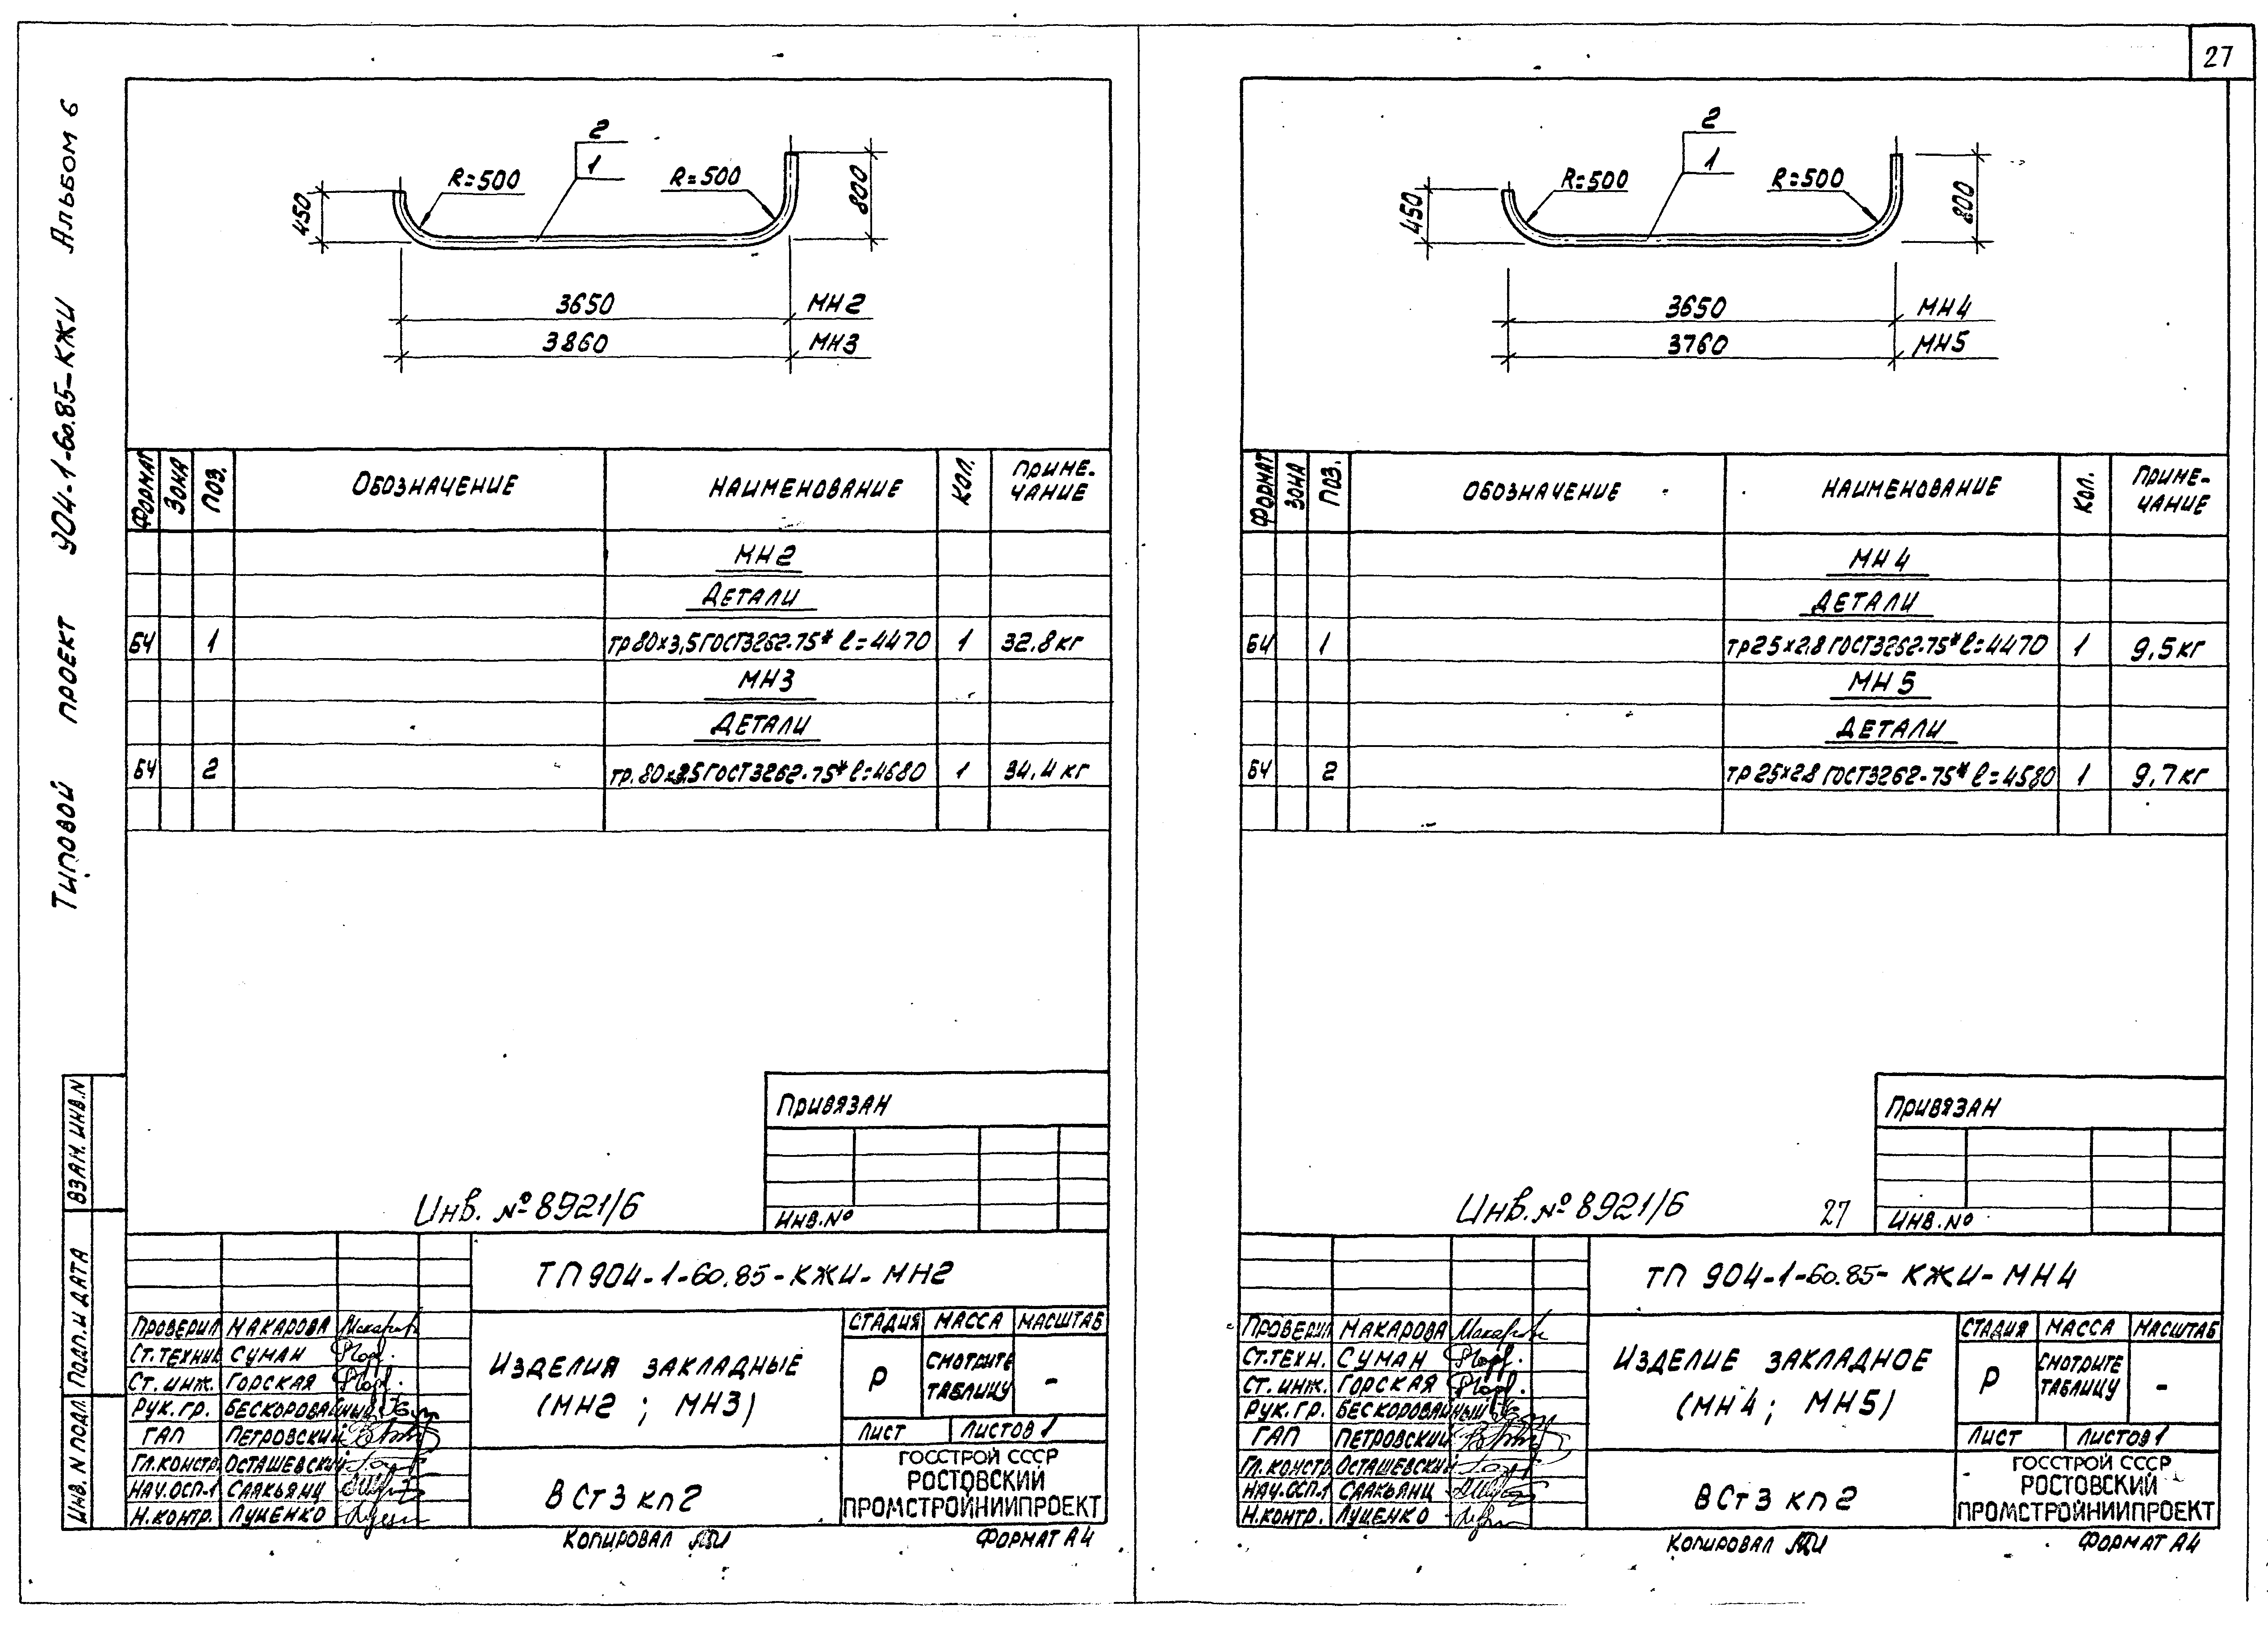 27
Типовой проект 904-1-60.85-КЖИ Альбом 6
2
1
R=500
R=500
450
800
3650 МН2
3860 МН3
ФОРМАТ ЗОНА ПОЗ. ОБОЗНАЧЕНИЕ НАИМЕНОВАНИЕ КОЛ. ПРИМЕ-
ЧАНИЕ
МН2
ДЕТАЛИ
БЧ 1 тр 80х3,5 ГОСТ3262-75* ℓ=4470 1 32,8 кг
МН3
ДЕТАЛИ
БЧ 2 тр. 80х3,5 ГОСТ3262-75* ℓ=4680 1 34,4 кг
ПРИВЯЗАН
ИНВ.№
Инв. № 8921/6
ВЗАМ. ИНВ.N
ПОДП. И ДАТА
ИНВ. N ПОДЛ.
ТП 904-1-60.85-КЖИ-МН2
ПРОВЕРИЛ МАКАРОВА
СТ.ТЕХНИК СУМАН
СТ. ИНЖ. ГОРСКАЯ
РУК. ГР. БЕСКОРОВАЙНЫЙ
ГАП ПЕТРОВСКИЙ
ГЛ.КОНСТР. ОСТАШЕВСКИЙ
НАЧ.ОСП-1 СААКЬЯНЦ
Н.КОНТР. ЛУЦЕНКО
ИЗДЕЛИЯ ЗАКЛАДНЫЕ
(МН2 ; МН3)
СТАДИЯ МАССА МАСШТАБ
Р СМОТРИТЕ
ТАБЛИЦУ -
ЛИСТ ЛИСТОВ 1
В Ст 3 кп 2
ГОССТРОЙ СССР
РОСТОВСКИЙ
ПРОМСТРОЙНИИПРОЕКТ
КОПИРОВАЛ
ФОРМАТ А4
2
1
R=500
R=500
450
800
3650 МН4
3760 МН5
ФОРМАТ ЗОНА ПОЗ. ОБОЗНАЧЕНИЕ НАИМЕНОВАНИЕ КОЛ. ПРИМЕ-
ЧАНИЕ
МН4
ДЕТАЛИ
БЧ 1 тр 25х2,8 ГОСТ3262-75* ℓ=4470 1 9,5 кг
МН5
ДЕТАЛИ
БЧ 2 тр 25х2.8 ГОСТ3262-75* ℓ=4580 1 9,7 кг
ПРИВЯЗАН
ИНВ.№
Инв. № 8921/6 27
ТП 904-1-60.85-КЖИ-МН4
ПРОВЕРИЛ МАКАРОВА
СТ.ТЕХН. СУМАН
СТ. ИНЖ. ГОРСКАЯ
РУК. ГР. БЕСКОРОВАЙНЫЙ
ГАП ПЕТРОВСКИЙ
ГЛ. КОНСТР. ОСТАШЕВСКИЙ
НАЧ.ОСП.1 СААКЬЯНЦ
Н.КОНТР. ЛУЦЕНКО
ИЗДЕЛИЕ ЗАКЛАДНОЕ
(МН4 ; МН5)
СТАДИЯ МАССА МАСШТАБ
Р СМОТРИТЕ
ТАБЛИЦУ -
ЛИСТ ЛИСТОВ 1
В Ст 3 кп 2
ГОССТРОЙ СССР
РОСТОВСКИЙ
ПРОМСТРОЙНИИПРОЕКТ
КОПИРОВАЛ
ФОРМАТ А4